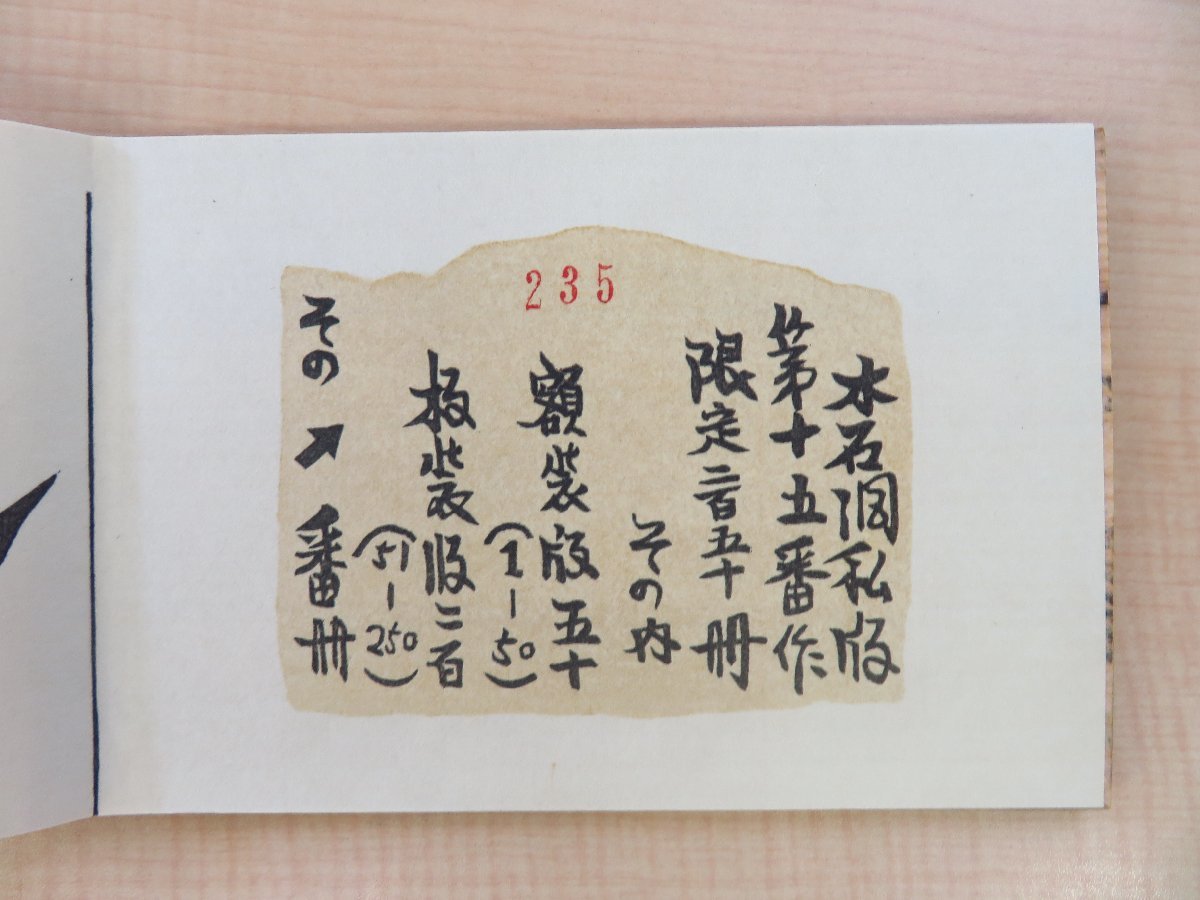 水石洞私版
第十五番作
限定二百五十冊
その内
額装版五十
(1-50)
板装版二百
(51-250)
その↗番冊
235